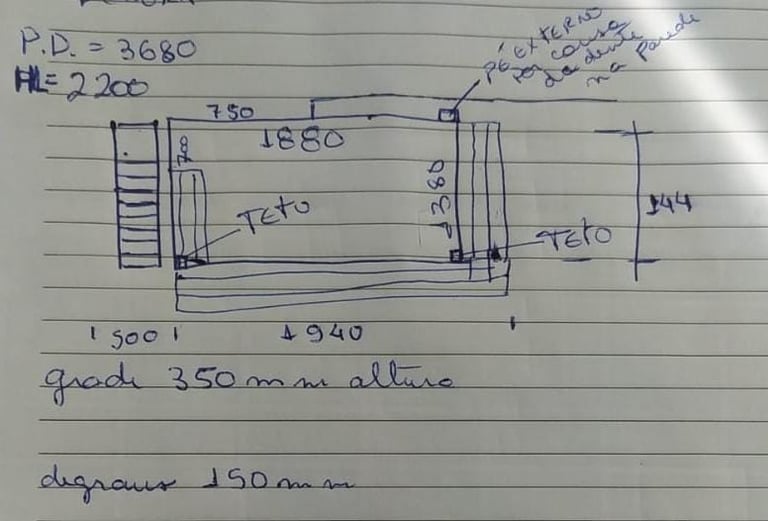 P.D. = 3680
HL = 2200
PÉ EXTERNO
por causa
da dente
na parede
750
1880
700
1380
144
TETO
TETO
500
1940
grade 350 mm altura
degraus 150 mm